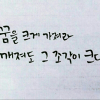 꿈을 크게 가져라
깨져도 그 조각이 크다